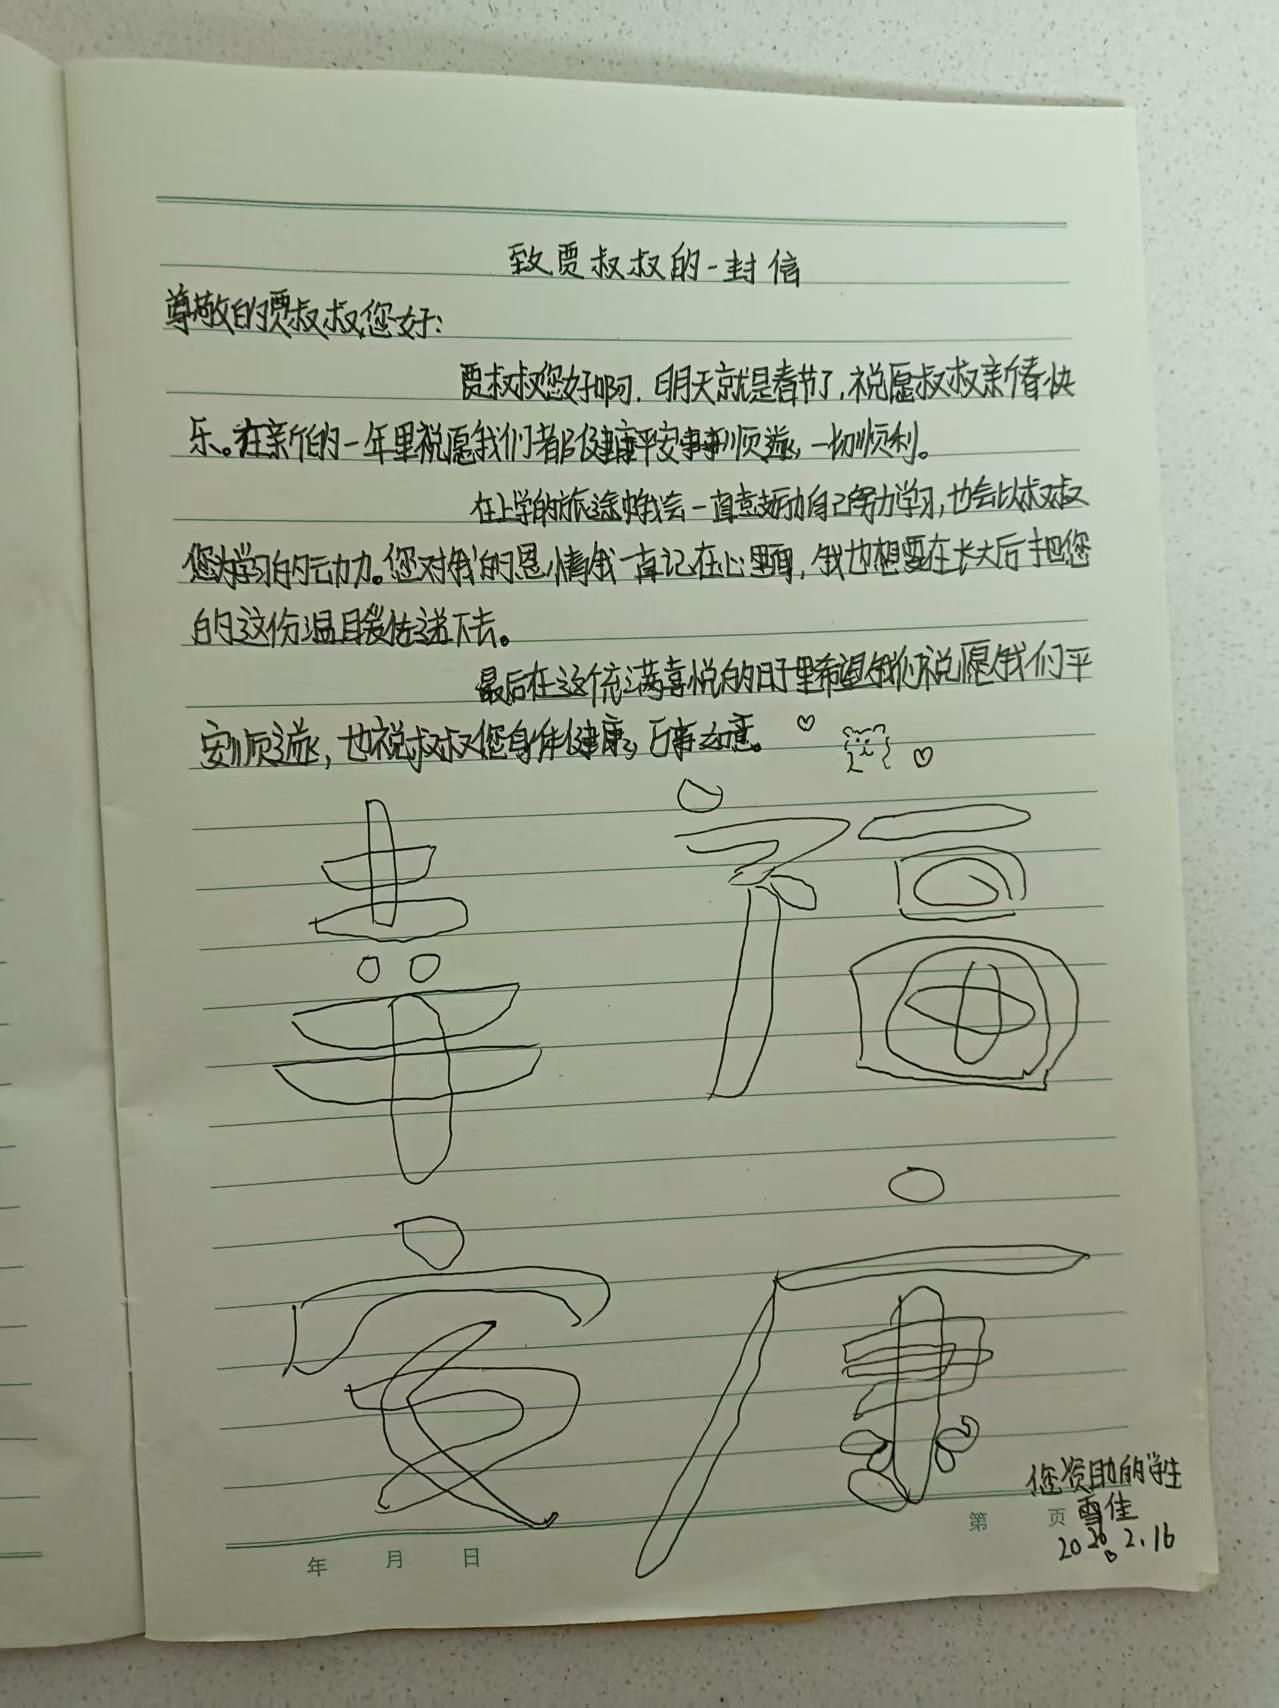 致贾叔叔的一封信
尊敬的贾叔叔您好：
贾叔叔您好啊，明天就是春节了，祝愿叔叔新春快
乐。在新的一年里祝愿我们都健康平安事事顺遂，一切顺利。
在上学的旅途中我会一直鼓励自己努力学习，也会以叔叔
您为学习的动力。您对我的恩情我一直记在心里面，我也想要在长大后把您
的这份温暖传递下去。
最后在这个充满喜悦的日子里希望我们祝愿我们平
安顺遂，也祝叔叔您身体健康，万事如意。
幸福
安康
您资助的学生
雪佳
2.16
年 月 日
第 页